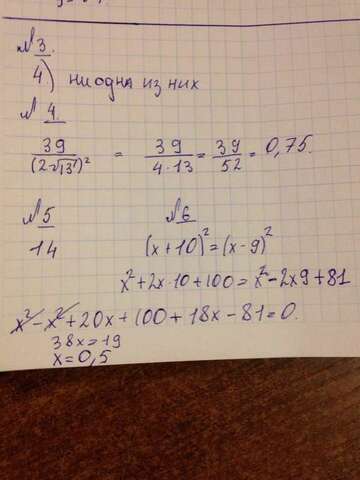 №3.
4) ни одна из них
№4.
39/(2√13)² = 39/4·13 = 39/52 = 0,75.
№5
14
№6
(x+10)²=(x-9)²
x²+2x·10+100=x²-2x9+81
x²-x²+20x+100+18x-81=0.
38x=19
x=0,5